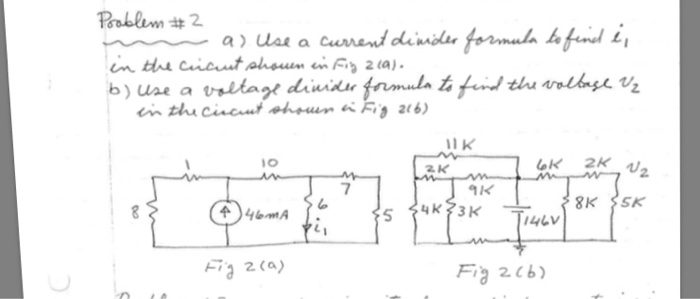 Problem # 2
a) Use a current divider formula to find i₁
in the circuit shown in Fig 2(a).
b) Use a voltage divider formula to find the voltage V₂
in the circuit shown in Fig 2(b)
11K
1 10 2K 6K 2K V₂
7 9K
8 46mA 6 5 4K 3K 146V 8K 5K
i₁
Fig 2(a) Fig 2(b)